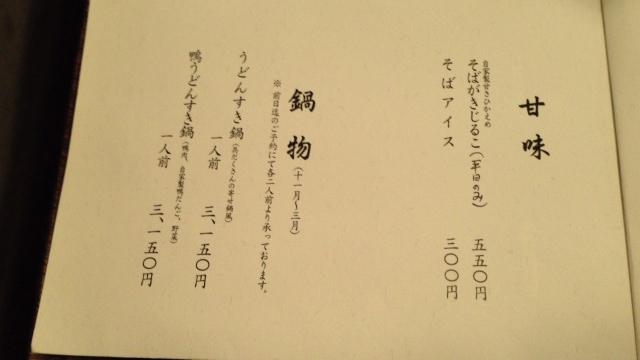 甘味
自家製甘さひかえめ
そばがきじるこ(平日のみ) 五五〇円
そばアイス 三〇〇円
鍋物(十一月～三月)
※前日迄のご予約にて各二人前より承っております。
うどんすき鍋(具だくさんの寄せ鍋風)
一人前 三、一五〇円
鴨うどんすき鍋(鴨肉、自家製鴨だんご、野菜)
一人前 三、一五〇円